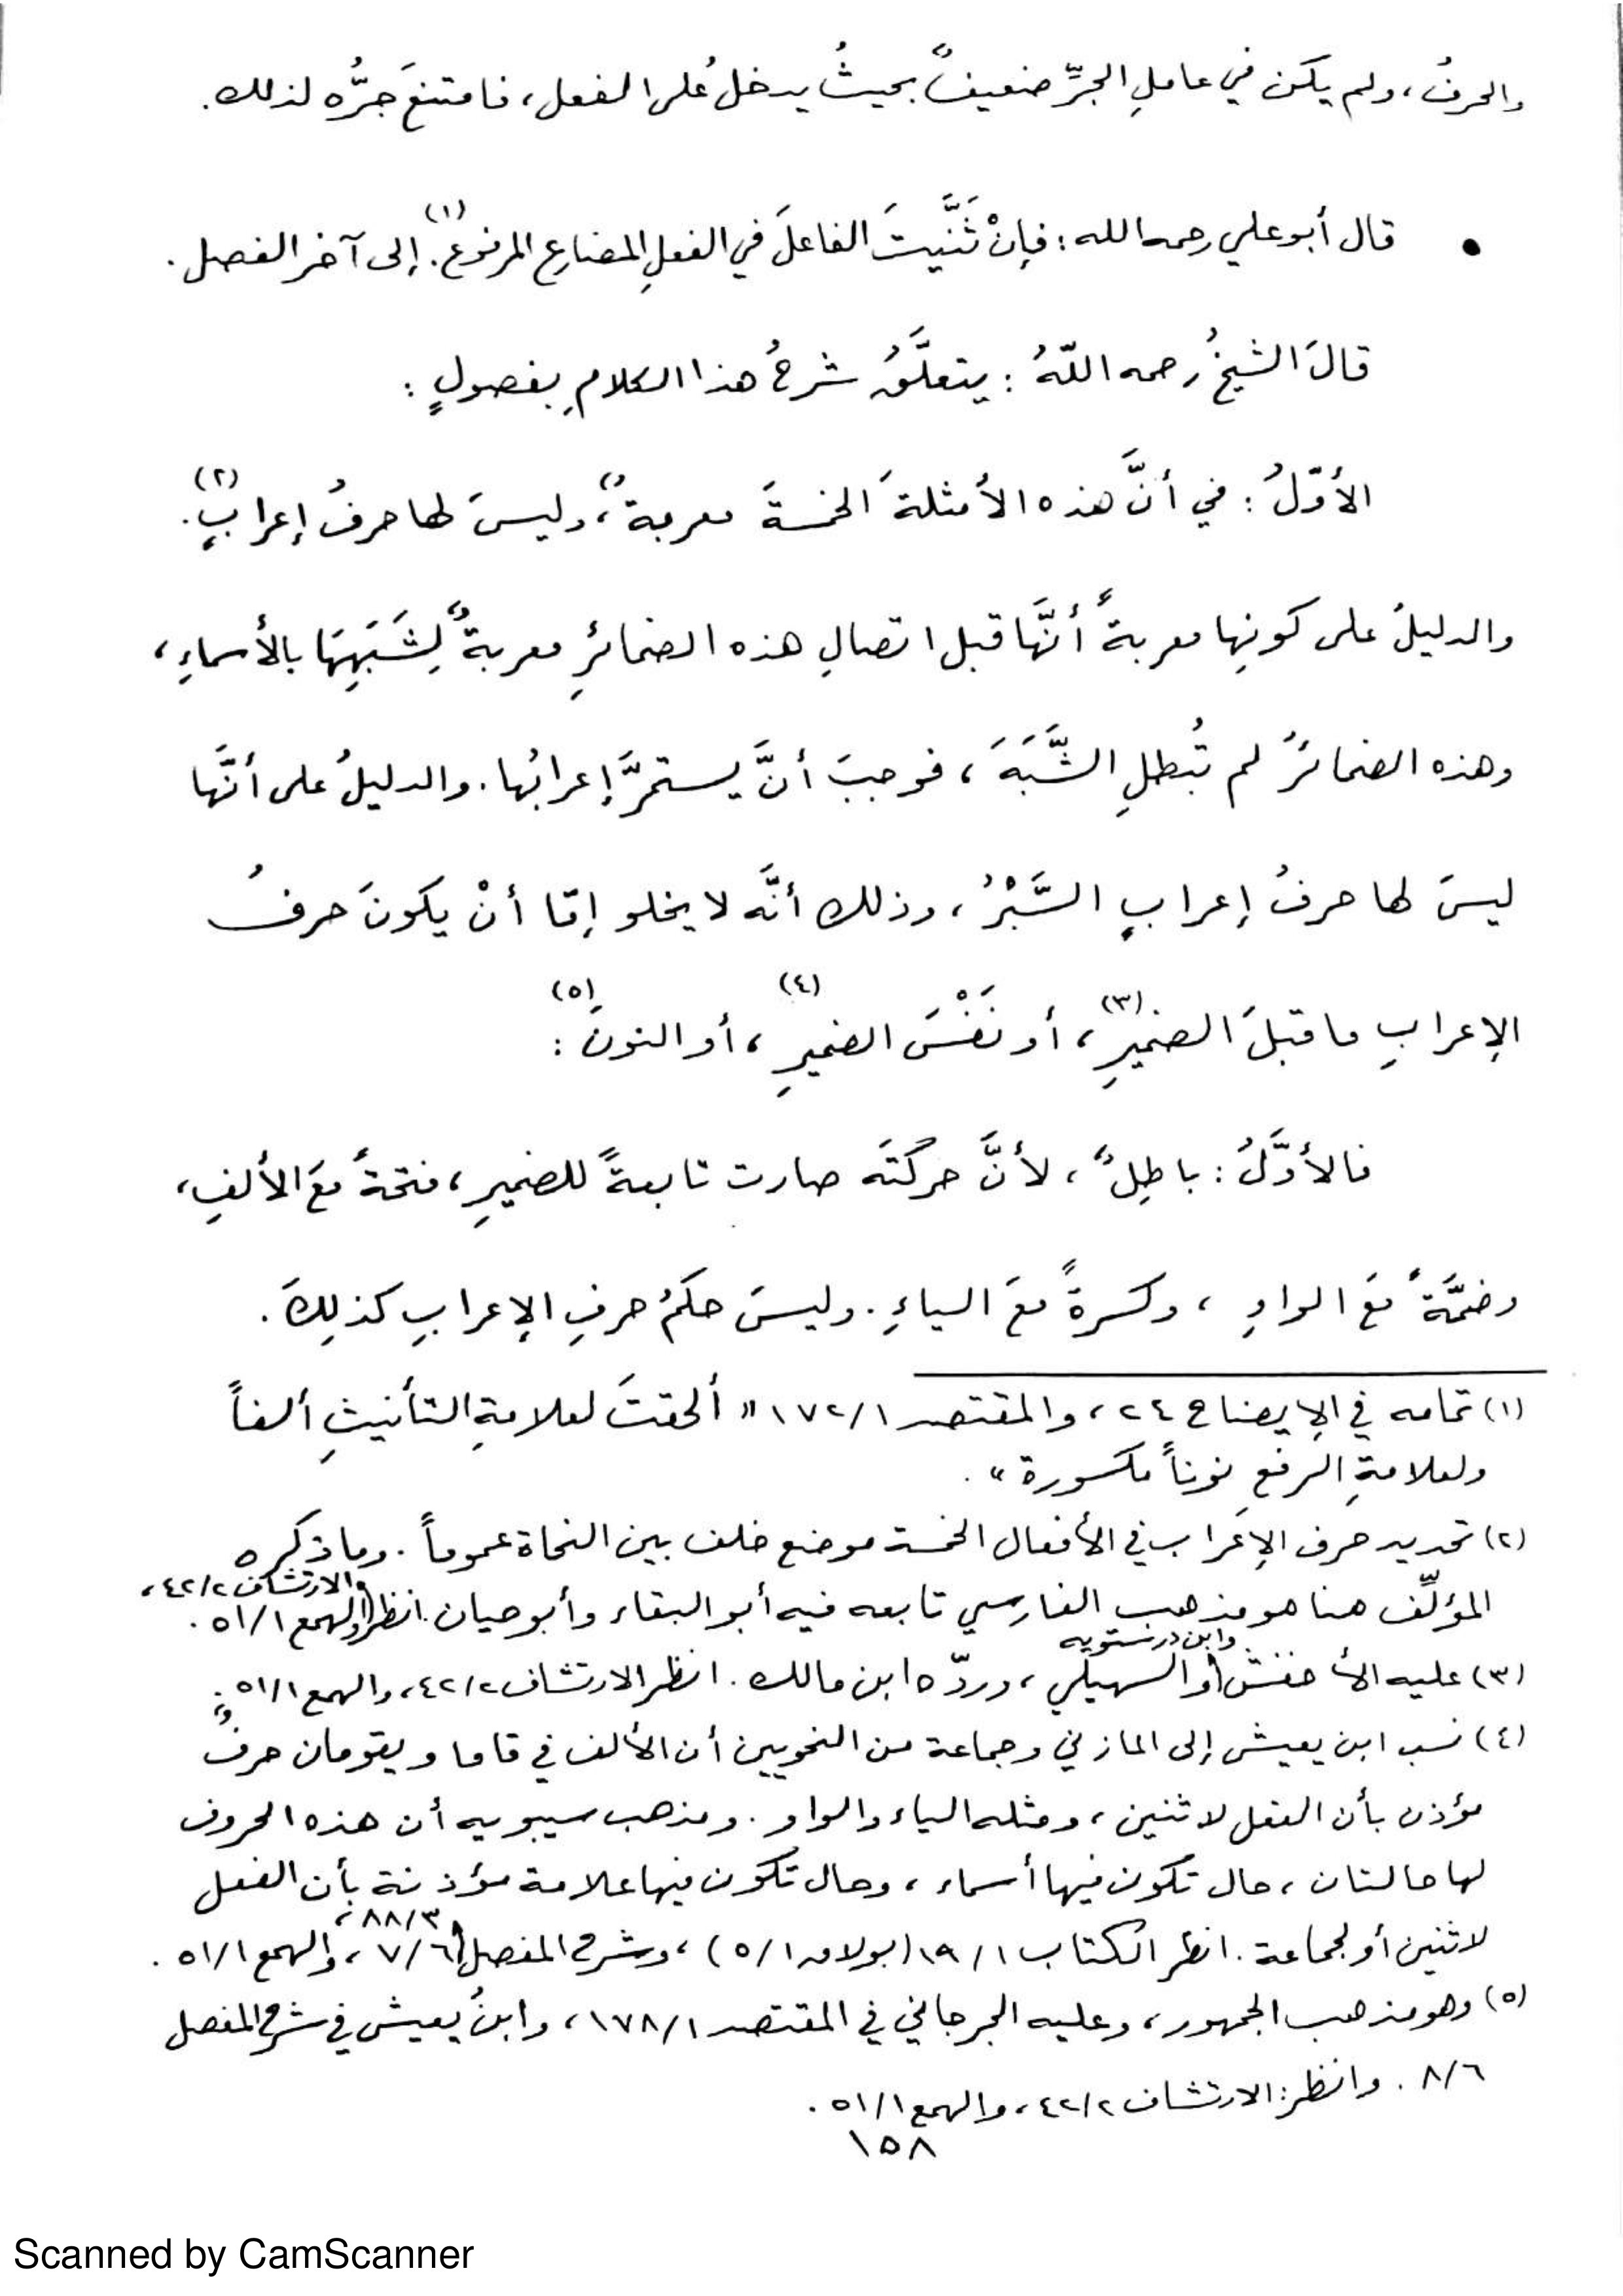 والحرفُ، ولم يكن في عاملِ الجرِّ ضعيفاً بحيثُ يدخلُ على الفعل، فامتنعَ جرُّه لذلك.
• قال أبو علي رحمه الله: فإنْ ثَنَّيتَ الفاعلَ في الفعلِ المضارعِ المرفوع(١). إلى آخر الفصل.
قالَ الشيخُ رحمه اللّهُ: يتعلَّقُ شرحُ هذا الكلامِ بفصولٍ:
الأوّلُ: في أنَّ هذه الأمثلةَ الخمسةَ معربةٌ، وليسَ لها حرفُ إعرابٍ(٢).
والدليلُ على كونِها معربةً أنَّها قبل اتصالِ هذه الضمائرِ معربةٌ لِشَبَهِهَا بالأسماءِ،
وهذه الضمائرُ لم تُبطلِ الشَّبَهَ، فوجبَ أنَّ يستمرَّ إعرابُها. والدليلُ على أنَّها
ليسَ لها حرفُ إعرابٍ السَّبْرُ، وذلك أنَّه لا يخلو إمّا أنْ يكونَ حرفُ
الإعرابِ ما قبلَ الضميرِ(٣)، أو نَفْسَ الضميرِ(٤)، أو النونَ(٥):
فالأوَّلُ: باطِلٌ، لأنَّ حركتَه صارت تابعةً للضميرِ، فتحةً معَ الألفِ،
وضمَّةً معَ الواوِ، وكسرةً معَ الياءِ. وليسَ حكمُ حرفِ الإعرابِ كذلِكَ.
(١) تمامه في الإيضاح ٢٤، والمقتصد ١/١٧٢ "ألحقتَ لعلامةِ التأنيثِ ألفاً
ولعلامةِ الرفعِ نوناً مكسورة".
(٢) تحديد حرف الإعراب في الأفعال الخمسة موضع خلف بين النحاة عموماً. وما ذكره
المؤلِّف هنا هو مذهب الفارسي تابعه فيه أبو البقاء وأبو حيان. انظر الارتشاف ٢/٤٢، والهمع ١/٥١.
(٣) عليه الأخفش وابن درستويه والسهيلي، وردّه ابن مالك. انظر الارتشاف ٢/٤٢، والهمع ١/٥١.
(٤) نسب ابن يعيش إلى المازني وجماعة من النحويين أن الألف في قاما ويقومان حرفٌ
مؤذن بأن الفعل لاثنين، ومثله الياء والواو. ومذهب سيبويه أن هذه الحروف
لها حالتان، حال تكون فيها أسماء، وحال تكون فيها علامة مؤذنة بأن الفعل
لاثنين أو لجماعة. انظر الكتاب ١/١٩ (بولاق ١/٥)، وشرح المفصل ٣/٨٨، ٦/٧، والهمع ١/٥١.
(٥) وهو مذهب الجمهور، وعليه الجرجاني في المقتصد ١/١٧٨، وابنُ يعيش في شرح المفصل
٦/٨. وانظر: الارتشاف ٢/٤٢، والهمع ١/٥١.
١٥٨
Scanned by CamScanner